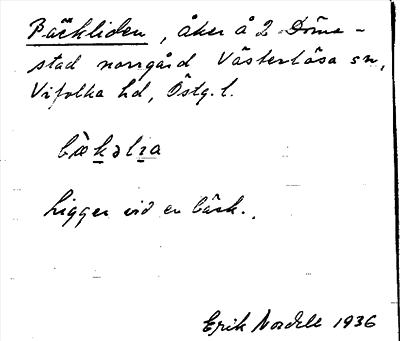 Bäckliden, åker å 2 Döme-
stad norrgård Västerlösa sn,
Vifolka hd, Östg. l.
bækəlıa
Ligger vid en bäck.
Erik Nordell 1936